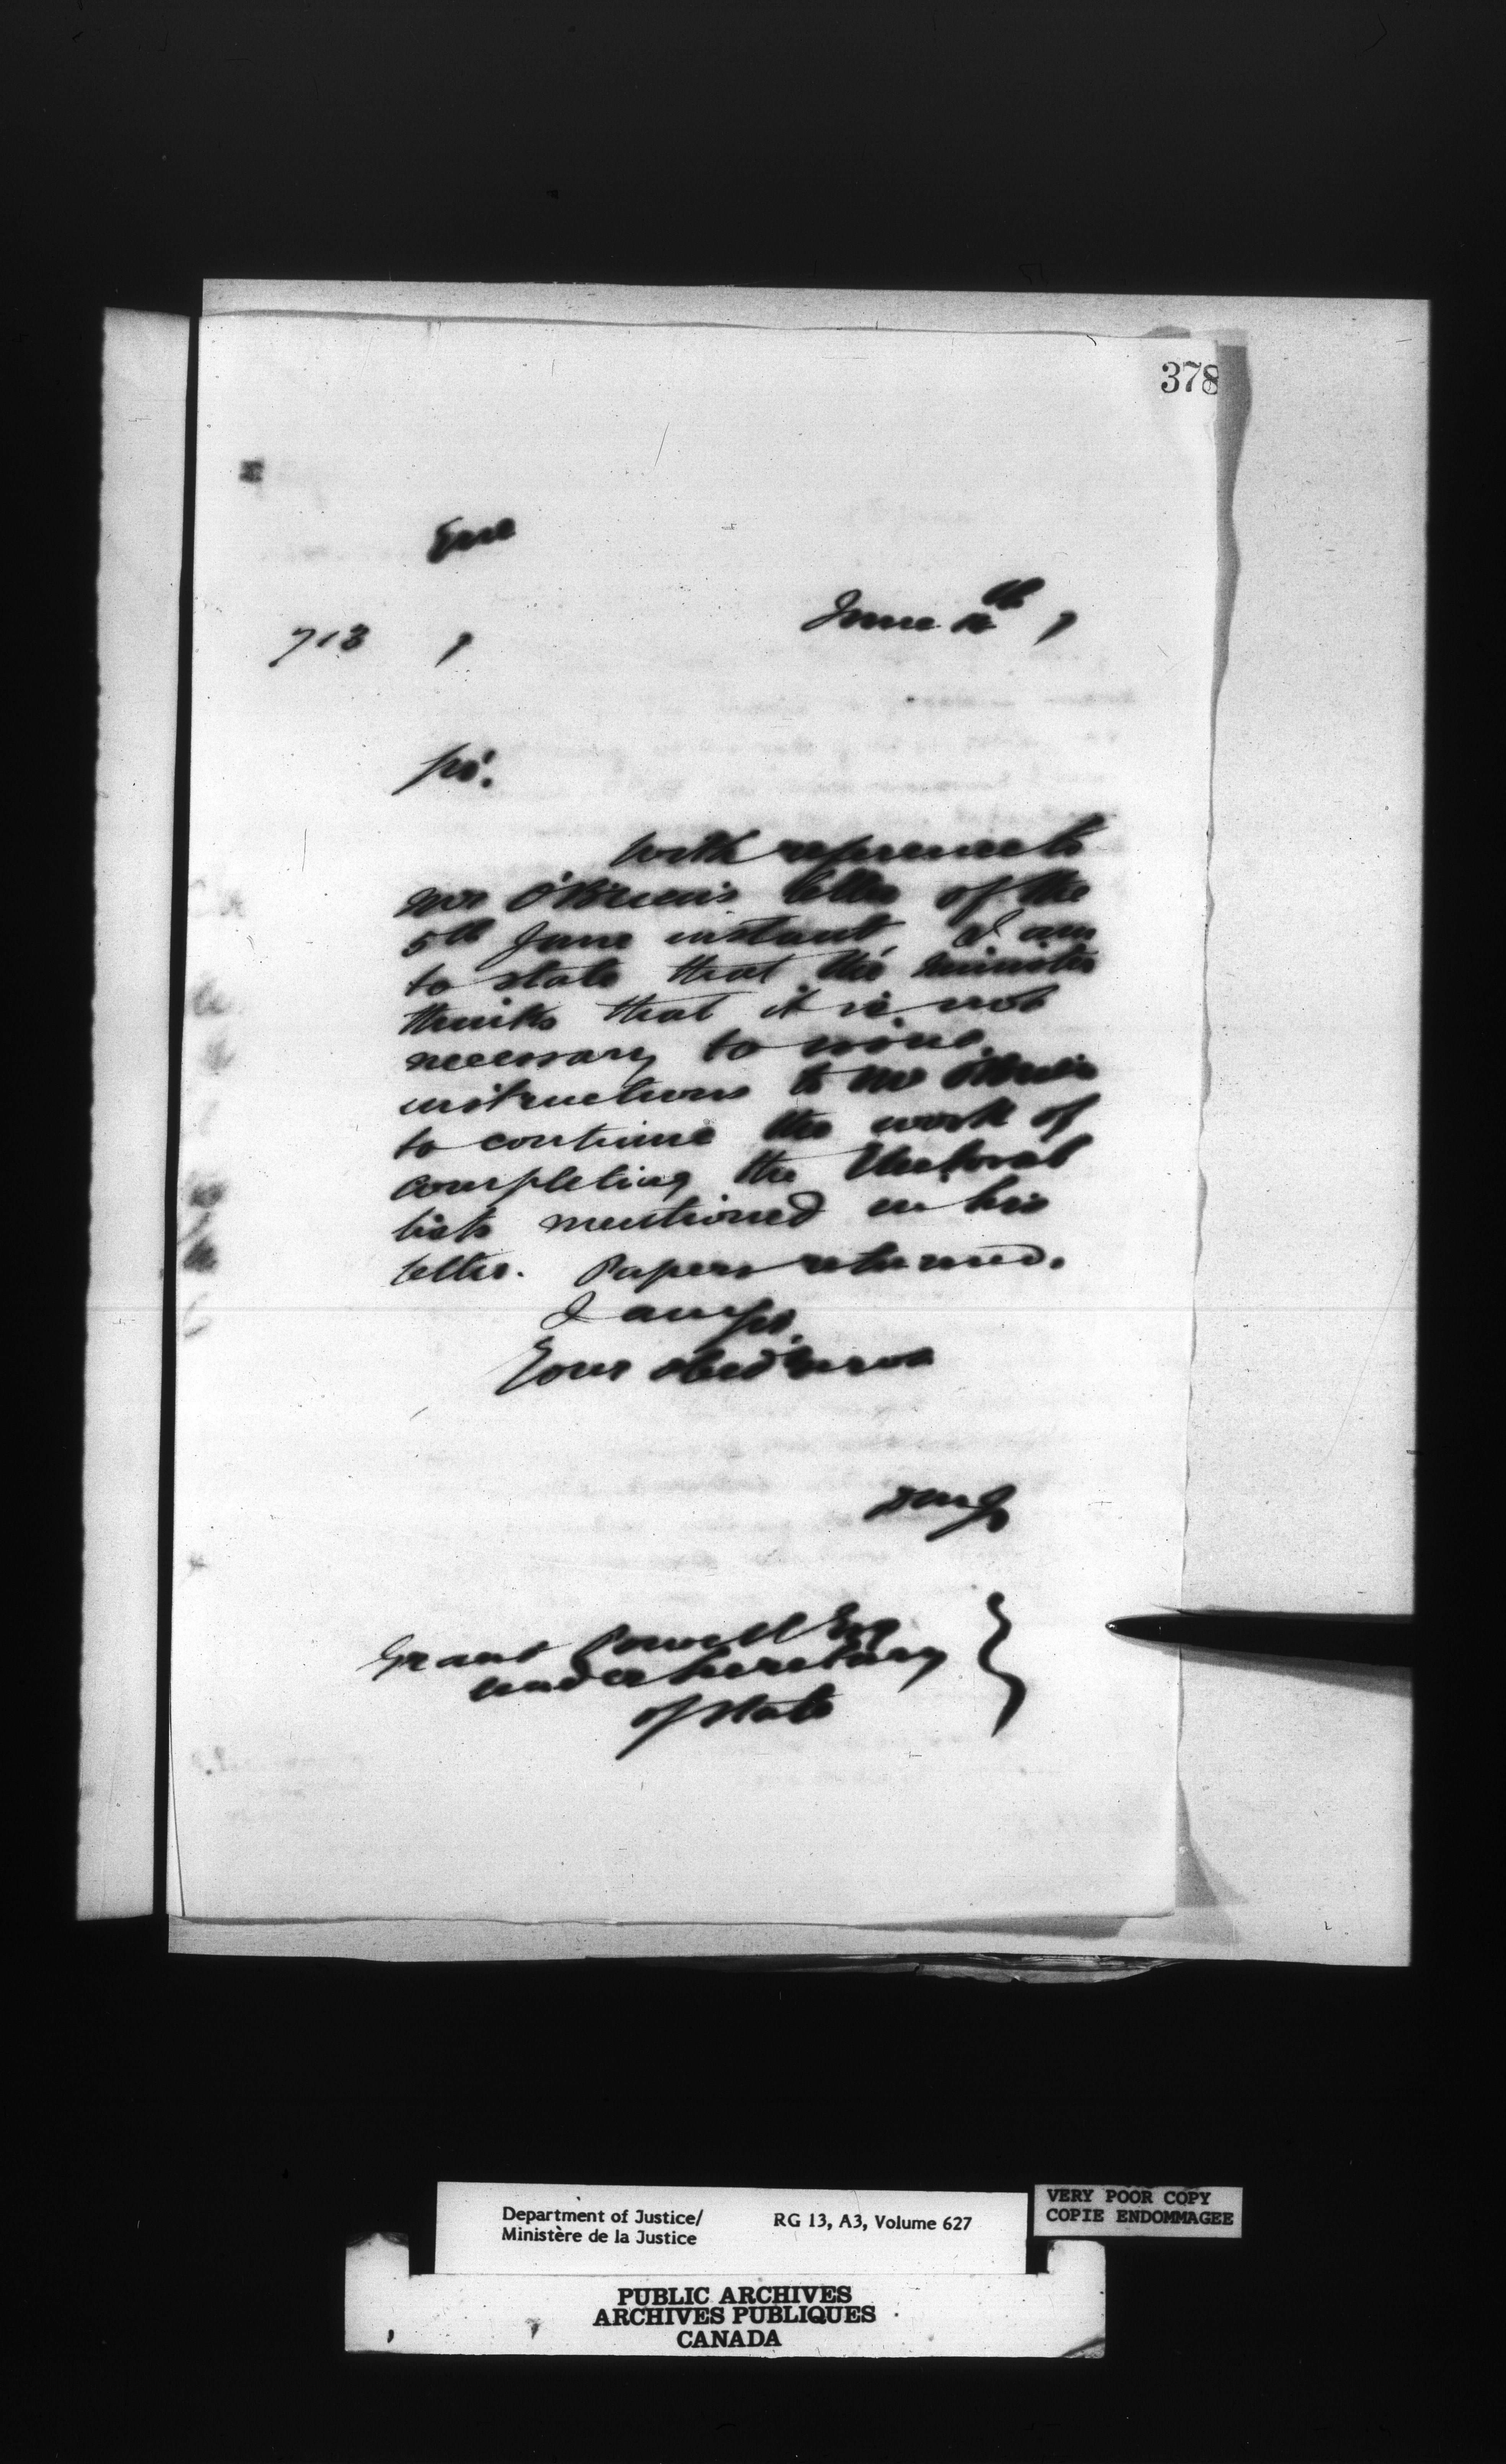 378
Encl
713 7
June th 7
Sir.
With reference to
Mr O'Brien's letter of the
5th June instant, I am
to state that the Minister
thinks that it is not
necessary to issue
instructions to Mr O'Brien
to continue the work of
completing the Electoral
lists mentioned in his
letter. Papers returned.
I am Sir.
Your obed serv
Grant Powell Esq
Under Secretary
of State
Department of Justice/ RG 13, A3, Volume 627
Ministère de la Justice
VERY POOR COPY
COPIE ENDOMMAGEE
PUBLIC ARCHIVES
ARCHIVES PUBLIQUES
CANADA